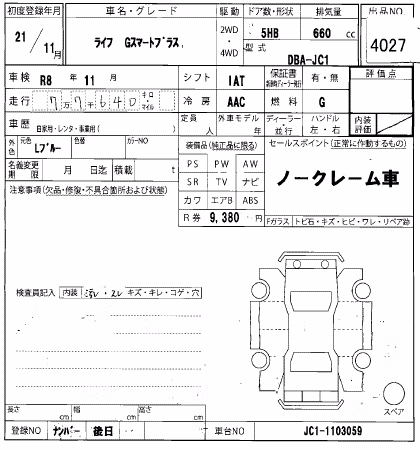 初度登録年月 車名・グレード 駆動 ドア数・形状 排気量 出品NO
21/11月 ライフ Gスマートプラス 2WD・4WD 5HB 660 cc 4027
型式 DBA-JC1
車検 R8年 11月 シフト IAT 保証書 有・無 評価点
走行 7万7千640 キロ・マイル 冷房 AAC 燃料 G
車歴 自家用・レンタ・事業用( ) 定員 人 外車モデル 年 ディーラー・並行 ハンドル 左・右 内装評価
外色 元色 Lブルー 色 カラーNO 装備品(純正品に限る) セールスポイント(正常に作動するもの)
名義変更期限 月 日迄 積載 t PS PW AW ノークレーム車
注意事項(欠品・修復・不具合箇所および状態) SR TV ナビ
カワ エアB ABS
R券 9,380円 Fガラス トビ石・キズ・ヒビ・ワレ・リペア跡
検査員記入 内装 汚レ・スレ キズ・キレ・コゲ・穴
スペア
長さ cm 幅 cm 高さ cm
登録NO ナンバー 後日 車台NO JC1-1103059